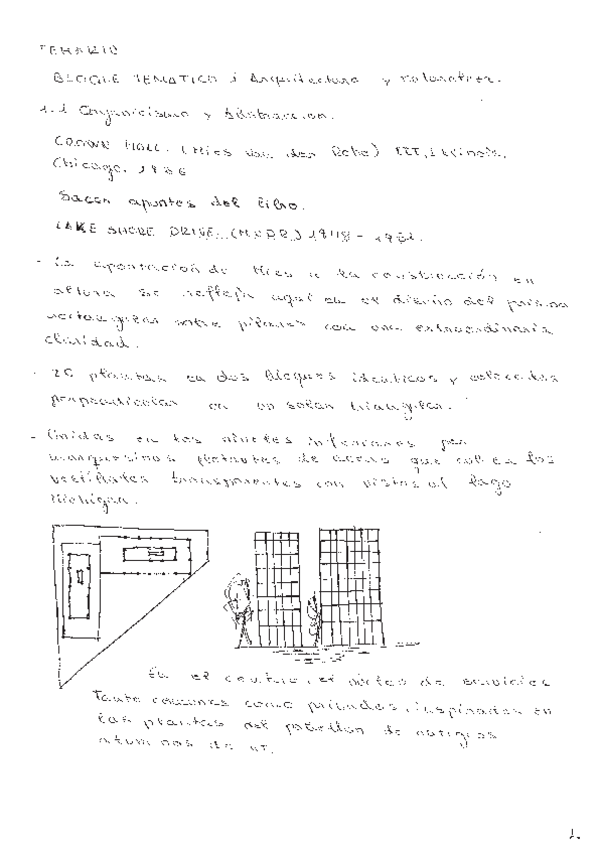 TEMARIO
BLOQUE TEMATICO 1 Arquitectura y
1.1 Organicismo y Abstraccion.
CROWN HALL. (Mies van der Rohe) IIT, Illinois.
Chicago. 1956
Sacar apuntes del libro.
LAKE SHORE DRIVE. (M.V.D.R.) 1948 - 1951.
- La aportación de Mies a la construcción en
altura se refleja aquí en el diseño del prisma
rectangular sobre pilares con una extraordinaria
claridad.
- 26 plantas en dos bloques identicos y colocados
perpendicular en un solar triangular.
- Unidas en los niveles inferiores por
marquesinas flotantes de acero que cubren los
vestíbulos transparentes con vistas al lago
Michigan.
En el centro, el núcleo de servicios
Tanto comunes como privados, inspirados en
las plantas del pabellon de antiguos
alumnos de IIT.
1.